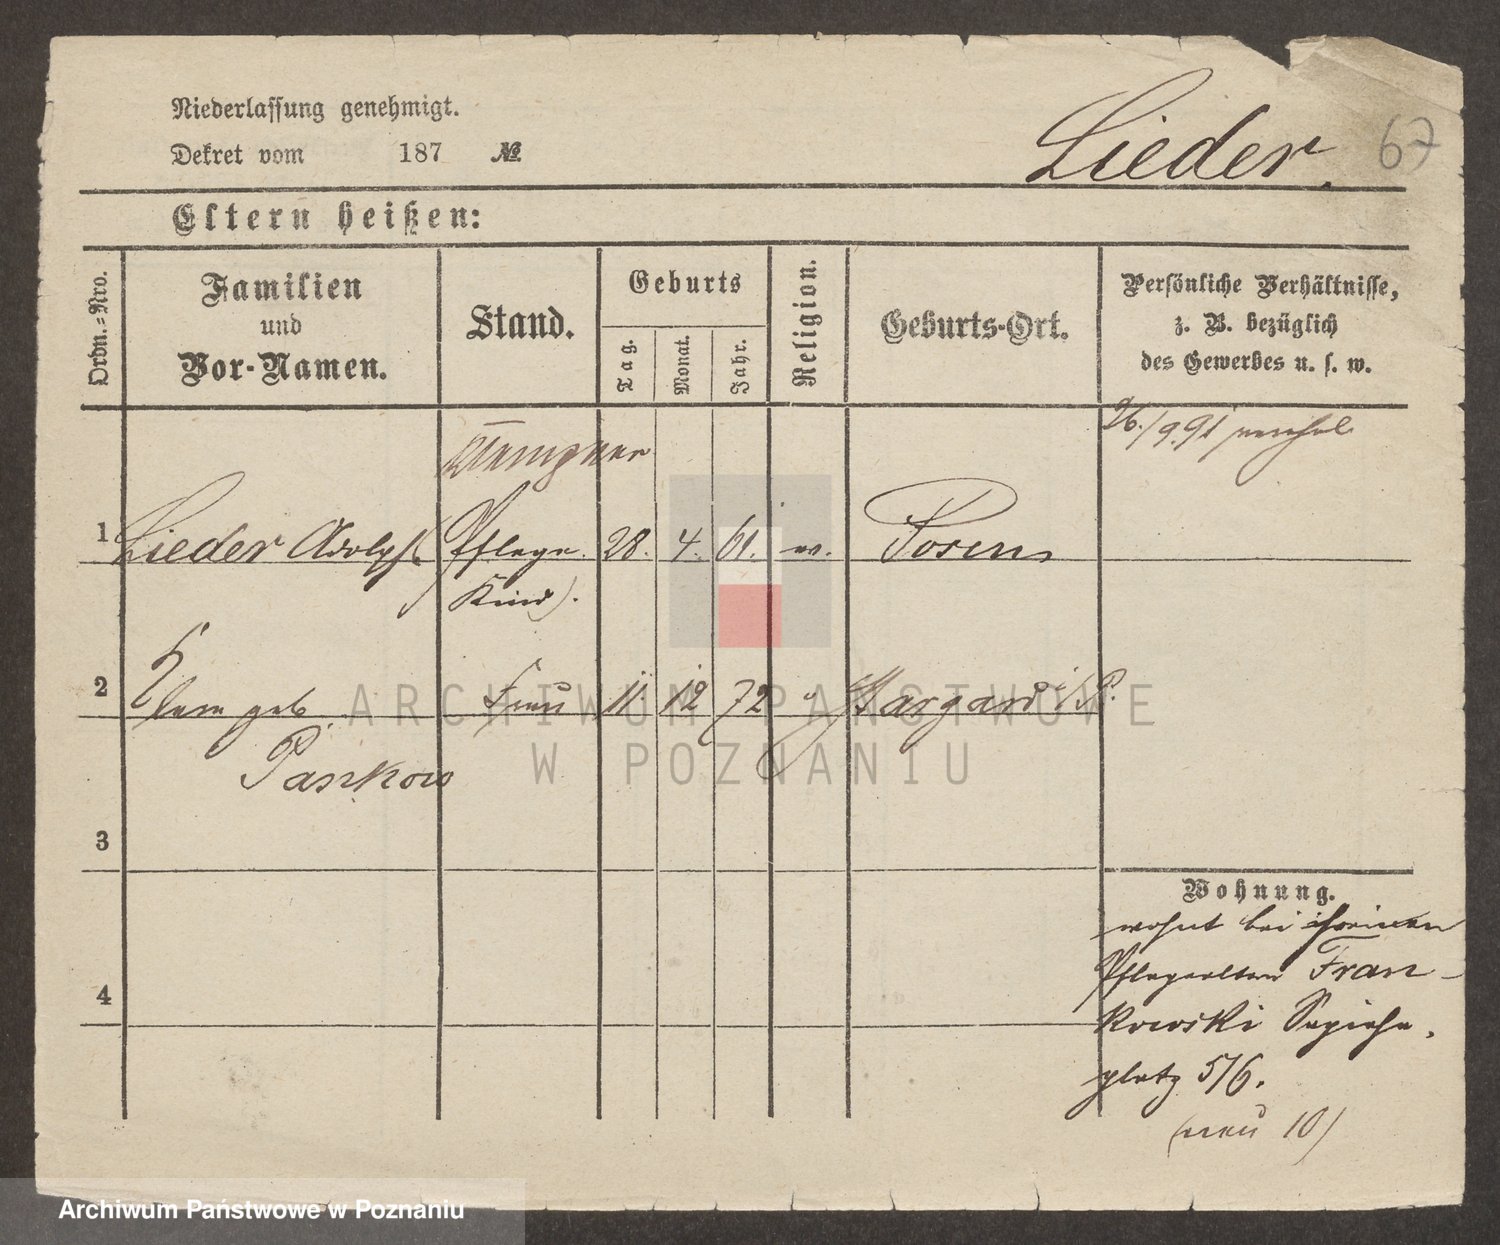 Niederlassung genehmigt.
Dekret vom 187 №
Lieder.
67
Eltern heißen:
Ordn.-Nro.
Familien
und
Vor-Namen.
Stand.
Geburts
Tag.
Monat.
Jahr.
Religion.
Geburts-Ort.
Persönliche Verhältnisse,
z. B. bezüglich
des Gewerbes u. s. w.
26./9.91
Klempner
1 Lieder Adolph (Pflege 28. 4. 61. Posen
Kind).
2 geb Frau 11 12 72 Stargard i/P.
Pankow
3
4
Wohnung.
wohnt bei
Pflegeeltern Fran-
kowski Sapieha-
platz 5/6.
(neu 10)
ARCHIWUM PAŃSTWOWE
W POZNANIU
Archiwum Państwowe w Poznaniu